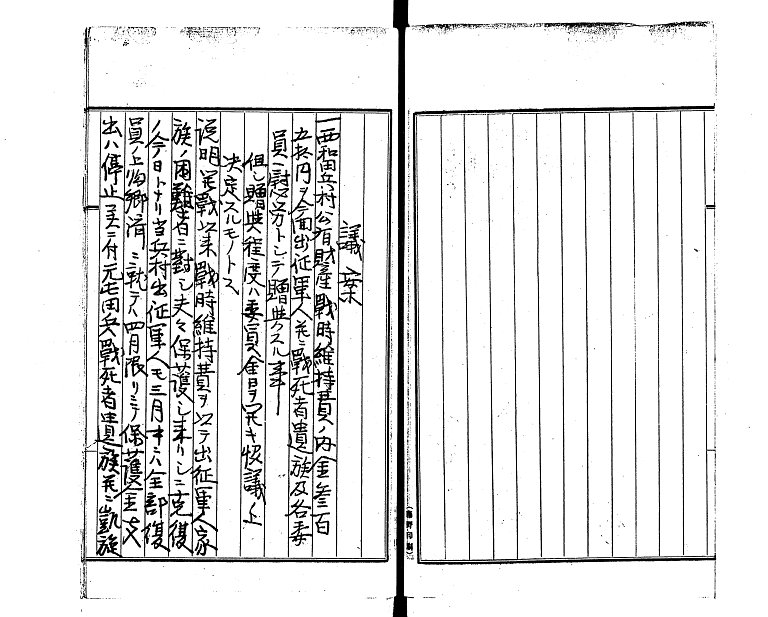 議案
一西和田兵村公有財産戦時維持費ノ内金参百
五拾円ヲ今回出征軍人並ニ戦死者遺族及各委
員ヘ慰労トシテ贈與スル事
但シ贈與程度ハ委員会日ヲ定メ協議ノ上
決定スルモノトス
説明 並戦以来戦時維持費ヲ以テ出征軍人家
族ノ困難者ニ對シ夫々保護シ来リシニ克復
ノ今日トナリ当兵村出征軍人モ三月中ニハ全部復
員ノ上帰郷済ニ就テハ四月限リニテ保護金支
出ハ停止スルニ付元屯田兵戦死者遺族並ニ凱旋